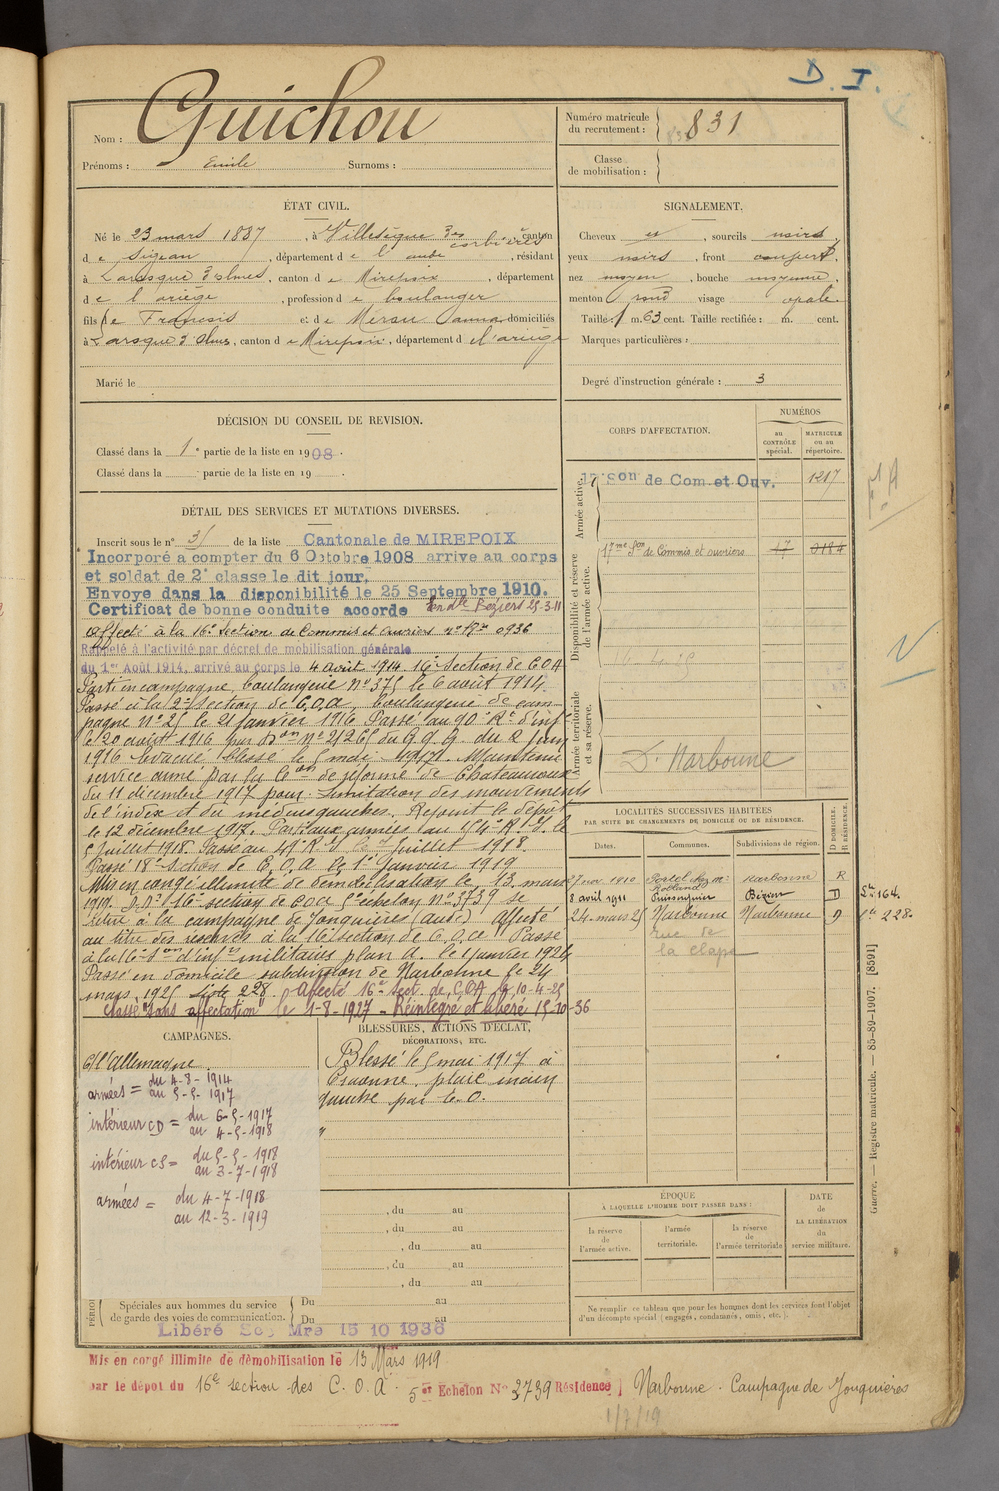 D. I.
Nom : Guichou
Prénoms : Emile Surnoms :
Numéro matricule du recrutement : 831
Classe de mobilisation :
ÉTAT CIVIL.
Né le 23 mars 1887, à Villesèque des corbières, canton
de Sigean, département de l'aude, résidant
à Laroque d'olmes, canton de Mirepoix, département
de l'ariège, profession de boulanger
fils de François et de domiciliés
à Laroque d'Olmes, canton de Mirepoix, département de l'ariège
Marié le
SIGNALEMENT.
Cheveux et, sourcils noirs
yeux noirs, front couvert,
nez moyen, bouche moyenne,
menton rond visage opale.
Taille : 1 m. 63 cent. Taille rectifiée : m. cent.
Marques particulières :
Degré d'instruction générale : 3
DÉCISION DU CONSEIL DE REVISION.
Classé dans la 1e partie de la liste en 1908.
Classé dans la partie de la liste en 19 .
CORPS D'AFFECTATION.
NUMÉROS
au CONTRÔLE spécial.
MATRICULE ou au répertoire.
Armée active.
17e Son de Com. et Ouv. 1217
Disponibilité et réserve de l'armée active.
17me Son de Commis et ouvriers 17 0184
Armée territoriale et sa réserve.
Dt Narbonne
DÉTAIL DES SERVICES ET MUTATIONS DIVERSES.
Inscrit sous le n° 31 de la liste Cantonale de MIREPOIX
Incorporé a compter du 6 Octobre 1908 arrive au corps
et soldat de 2e classe le dit jour.
Envoye dans la disponibilité le 25 Septembre 1910.
Certificat de bonne conduite accorde Béziers 25.3.11
affecté à la 16e Section de Commis et ouvriers n° Rre 0936
Rappelé à l'activité par décret de mobilisation générale
du 1er Août 1914, arrivé au corps le 4 août 1914 16e Section de C O A
Parti en campagne, boulangerie N° 375 le 6 août 1914
Passé à la 2e Section de C.O.A, boulangerie de cam-
pagne N° 25 le 21 Janvier 1916 Passé au 90e Rt d'inf
le 20 août 1916 par Don N° 21265 du G.Q.G. du 2 Juin
1916 Evacué blessé le 5 mai 1917. Maintenu
service armé par la Con de réforme de Chateauroux
du 11 décembre 1917 pour limitation des mouvements
de l'index et du médius gauches. Rejoint le dépôt
le 12 décembre 1917. Parti aux armées au R. I. le
5 Juillet 1918. Passé au Juillet 1918.
Passé 18e Section de C.O.A le 1er Janvier 1919
Mis en congé illimité de démobilisation le 13 mars
1919. D.D. 16e section de coa 5e échelon n° 3739 se
retire à la campagne de Jonquières (aude) Affecté
au titre des réserves à la 16e section de C.O.A Passé
à la 16e Son d'infers militaires plan A. le 1 janvier 1924
Passé en domicile subdivision de Narbonne le 24
mars 1925 liste 228. Affecté 16e Sect. de COA le 10-4-25
Classé "sans affectation" le 1-8-1927 - Réintégré et libéré 15-10-36
LOCALITÉS SUCCESSIVES HABITÉES
PAR SUITE DE CHANGEMENTS DE DOMICILE OU DE RÉSIDENCE.
Dates. Communes. Subdivisions de région. D DOMICILE. R RÉSIDENCE.
27 nov 1910 Portel chez Mr Rolland Narbonne R
8 avril 1911 Puisserguier Béziers D Lte 164
24 mars 25 Narbonne Narbonne D Lte 228
rue de
la clape
CAMPAGNES.
C/ l'Allemagne
armées = du 4-8-1914
au 5-5-1917
intérieur CD = du 6-5-1917
au 4-5-1918
intérieur CS = du 5-5-1918
au 3-7-1918
armées = du 4-7-1918
au 12-3-1919
BLESSURES, ACTIONS D'ÉCLAT,
DÉCORATIONS, ETC.
Blessé le 5 mai 1917 à
Craonne, plaie main
gauche par é. o.
, du au
, du au
, du au
, du au
, du au
Spéciales aux hommes du service de garde des voies de communication. Du au
Du au
Libéré Mre 15 10 1936
ÉPOQUE
À LAQUELLE L'HOMME DOIT PASSER DANS :
la réserve de l'armée active.
l'armée territoriale.
la réserve de l'armée territoriale
DATE de LA LIBÉRATION du service militaire.
Ne remplir ce tableau que pour les hommes dont les services font l'objet
d'un décompte spécial (engagés, condamnés, omis, etc.).
Guerre. — Registre matricule. — 85-89-1907. [8591]
Mis en congé illimité de démobilisation le 13 Mars 1919
par le dépot du 16e section des C. O. A. 5e Echelon N° 3739 Résidence Narbonne. Campagne de Jonquières
1/7/19